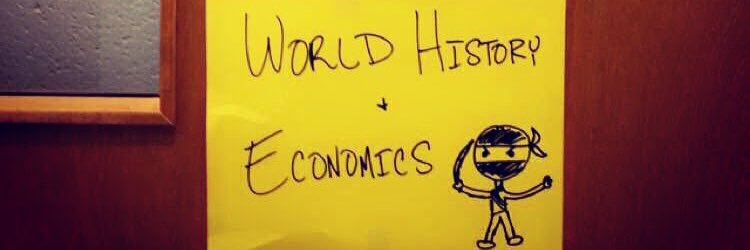 WORLD HISTORY
+
ECONOMICS